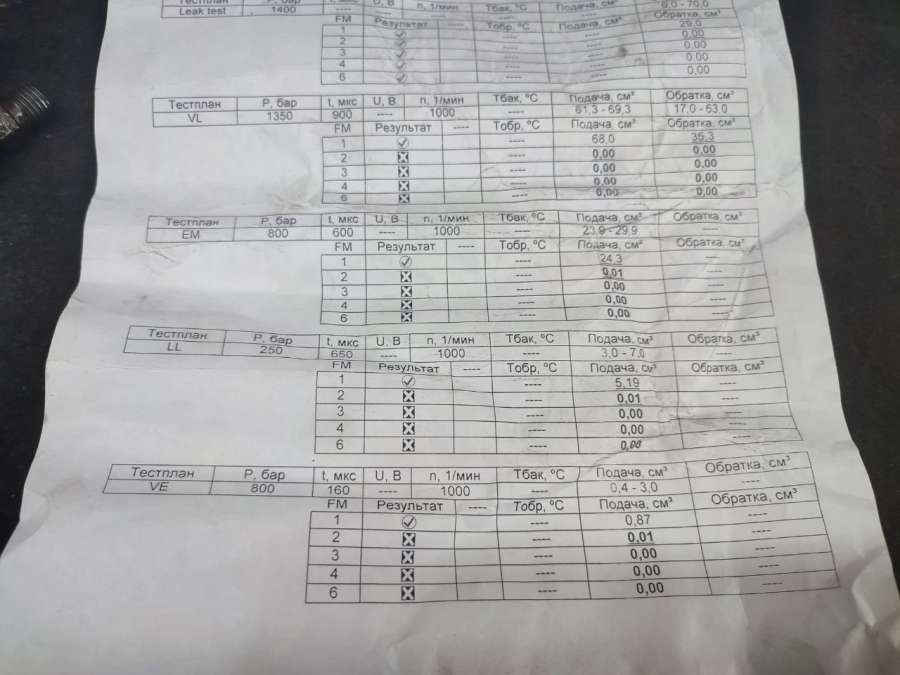 Тестплан P, бар t, мкс U, В n, 1/мин Тбак, ºС Подача, см³ Обратка, см³
Leak test 1400 ---- ---- 0,0 - 70,0
FM Результат ---- Тобр, ºС Подача, см³ Обратка, см³
1 ---- ---- 29,0
2 ---- ---- 0,00
3 ---- ---- 0,00
4 ---- ---- 0,00
6 ---- ---- 0,00
Тестплан P, бар t, мкс U, В n, 1/мин Тбак, ºС Подача, см³ Обратка, см³
VL 1350 900 ---- 1000 ---- 61,3 - 69,3 17,0 - 63,0
FM Результат ---- Тобр, ºС Подача, см³ Обратка, см³
1 ---- 68,0 35,3
2 ---- 0,00 0,00
3 ---- 0,00 0,00
4 ---- 0,00 0,00
6 ---- 0,00 0,00
Тестплан P, бар t, мкс U, В n, 1/мин Тбак, ºС Подача, см³ Обратка, см³
EM 800 600 ---- 1000 ---- 23,9 - 29,9 ----
FM Результат ---- Тобр, ºС Подача, см³ Обратка, см³
1 ---- 24,3 ----
2 ---- 0,01 ----
3 ---- 0,00 ----
4 ---- 0,00 ----
6 ---- 0,00 ----
Тестплан P, бар t, мкс U, В n, 1/мин Тбак, ºС Подача, см³ Обратка, см³
LL 250 650 ---- 1000 ---- 3,0 - 7,0 ----
FM Результат ---- Тобр, ºС Подача, см³ Обратка, см³
1 ---- 5,19 ----
2 ---- 0,01 ----
3 ---- 0,00 ----
4 ---- 0,00 ----
6 ---- 0,00 ----
Тестплан P, бар t, мкс U, В n, 1/мин Тбак, ºС Подача, см³ Обратка, см³
VE 800 160 ---- 1000 ---- 0,4 - 3,0 ----
FM Результат ---- Тобр, ºС Подача, см³ Обратка, см³
1 ---- 0,87 ----
2 ---- 0,01 ----
3 ---- 0,00 ----
4 ---- 0,00 ----
6 ---- 0,00 ----